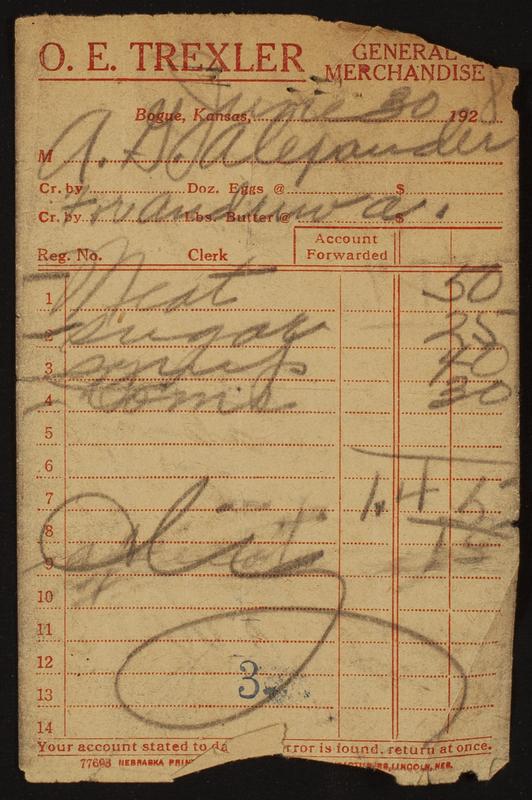 O. E. TREXLER
GENERAL
MERCHANDISE
Bogue, Kansas, June 30 1928
M A. G. Alexander
Cr. by Doz. Eggs @ $
Cr. by Lbs. Butter @ $
For
Reg. No. Clerk Account Forwarded
1 Meat 50
2 sugar 25
3 syrup 40
4 30
5
6
7 1.45
8 15
9
10
11
12
3
13
14
Your account stated to da rror is found, return at once.
77693 NEBRASKA PRIN LINCOLN, NEB.